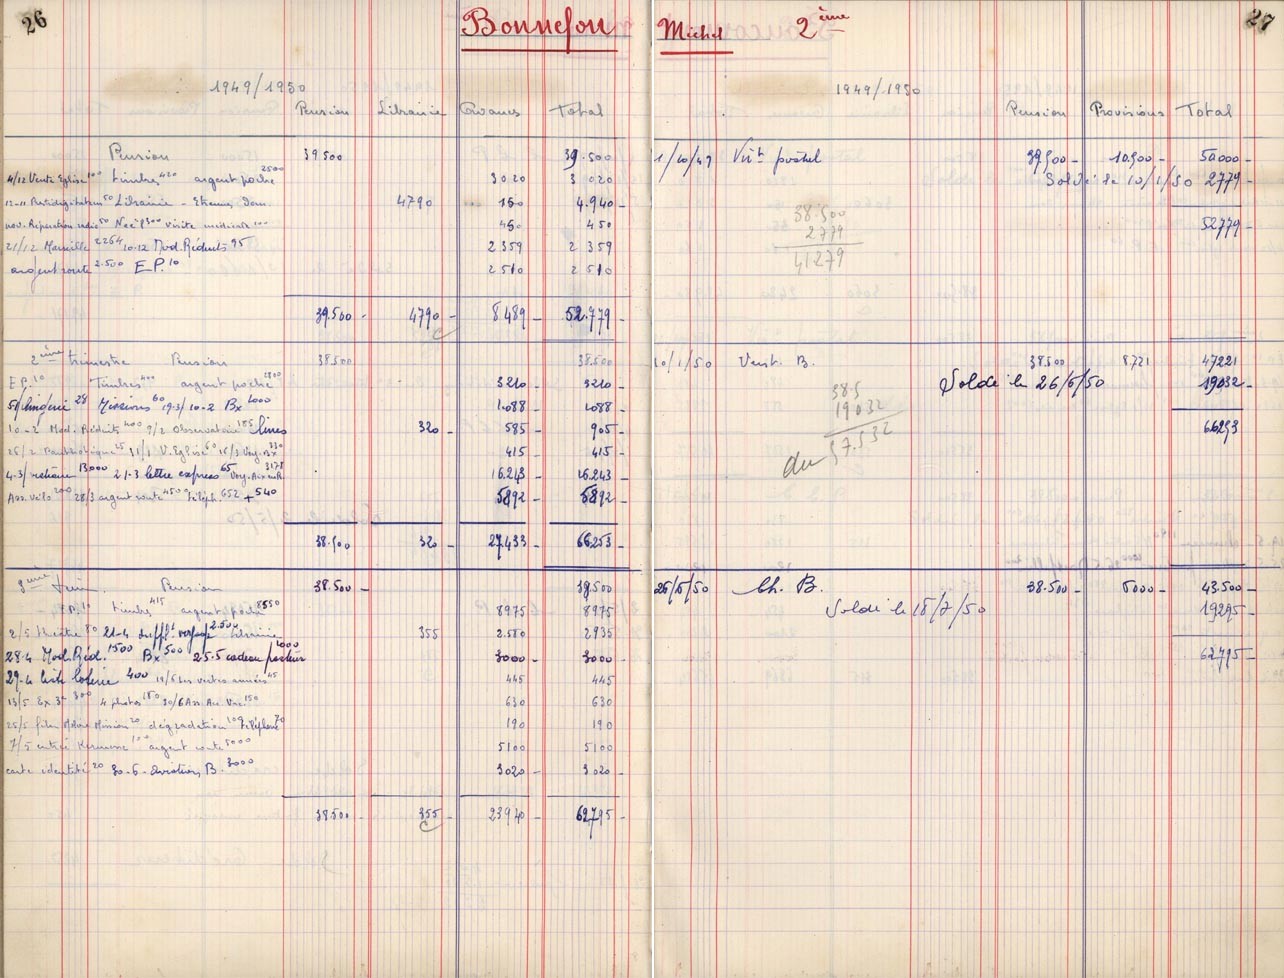 26
Bonnefon
1949/1950
Pension Librairie Avances Total
Pension 39500 39.500
4/12 Vente Eglise 100 timbres 420 argent poche 2500 3020 3020
12-11 Prestidigitateur 50 Librairie - Etienne dom. 4790 150 4.940 -
nov. Réparation radio 50 Noël 300 visite médicale 100 450 450
21/12 Marseille 2264 10.12 Mod. Réduits 95 2359 2359
argent route 2.500 E.P. 10 2510 2510
39.500 - 4790 - 8489 - 52.779 -
2ème trimestre Pension 38.500 38.500
E.P. 10 Timbres 400 argent poche 2800 3210 - 3210 -
lingerie 28 Missions 60 19-3/10-2 Bx 1000 1088 - 1088 -
10-2 Mod. Réduits 400 9/2 Observatoire 185 livres 320 - 585 - 905 -
415 - 415 -
4-3/ 13000 21-3 lettre express 65 3178 16.243 - 16.243 -
Ass. vélo 200 28/3 argent route 4500 téléph. 652 + 540 5892 - 5892 -
38.500 - 320 - 27.433 - 66.253 -
3ème trim. Pension 38.500 - 38.500
E.P. 10 timbres 415 argent poche 8550 8975 8975
2/5 théâtre 80 21-4 suppt voyage 2.500 librairie 355 2.580 2935
28-4 Mod. Réd. 1500 Bx 500 25-5 cadeau pasteur 1000 3000 - 3000 -
29-4 liste loterie 400 45 445 445
13/5 Ex 300 4 photos 180 30/6 Ass. 150 630 630
25/5 film Mission 20 dégradation 100 téléphone 70 190 190
7/5 entrée Kermesse 100 argent route 5000 5100 5100
carte identité 20 30-6- B. 3000 3020 - 3020 -
38.500 - 355 - 23940 - 62795 -
27
Michel 2ème
1949/1950
Pension Provisions Total
1/10/49 Virt postal 39.500 - 10.500 - 50000 -
Soldé le 10/1/50 2779 -
52779 -
38.500
2779
41279
10/1/50 Verst. B. 38.500 8.721 47221
Soldé le 26/5/50 19032 -
66253
38.5
19032
du 57.532
26/5/50 Ch. B. 38.500 - 5000 - 43.500 -
Soldé le 18/7/50 19295 -
62795 -